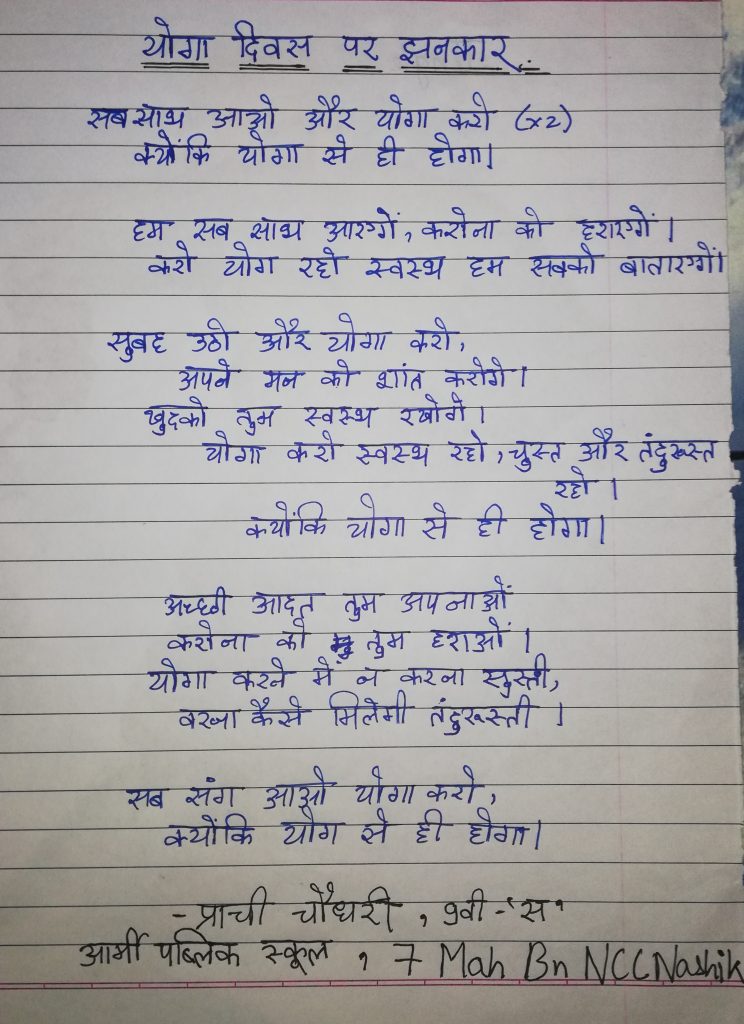 योगा दिवस पर झनकार..
सब साथ आओ और योगा करो (x2)
क्योंकि योगा से ही होगा।
हम सब साथ आएगें, करोना को हराएगें।
करो योग रहो स्वस्थ हम सबको बाताएगें।
सुबह उठो और योगा करो,
अपने मन को शांत करोगे।
खुदको तुम स्वस्थ रखोगे।
योगा करो स्वस्थ रहो, चुस्त और तंदुरूस्त
रहो।
क्योंकि योगा से ही होगा।
अच्छी आदत तुम अपनाओं
करोना को तुम हराओं।
योगा करने में न करना सुस्ती,
वरना कैसे मिलेगी तंदुरूस्ती।
सब संग आओ योगा करो,
क्योंकि योग से ही होगा।
- प्राची चौधरी, 9वी -'स'
आर्मी पब्लिक स्कूल, 7 Mah Bn NCC Nashik